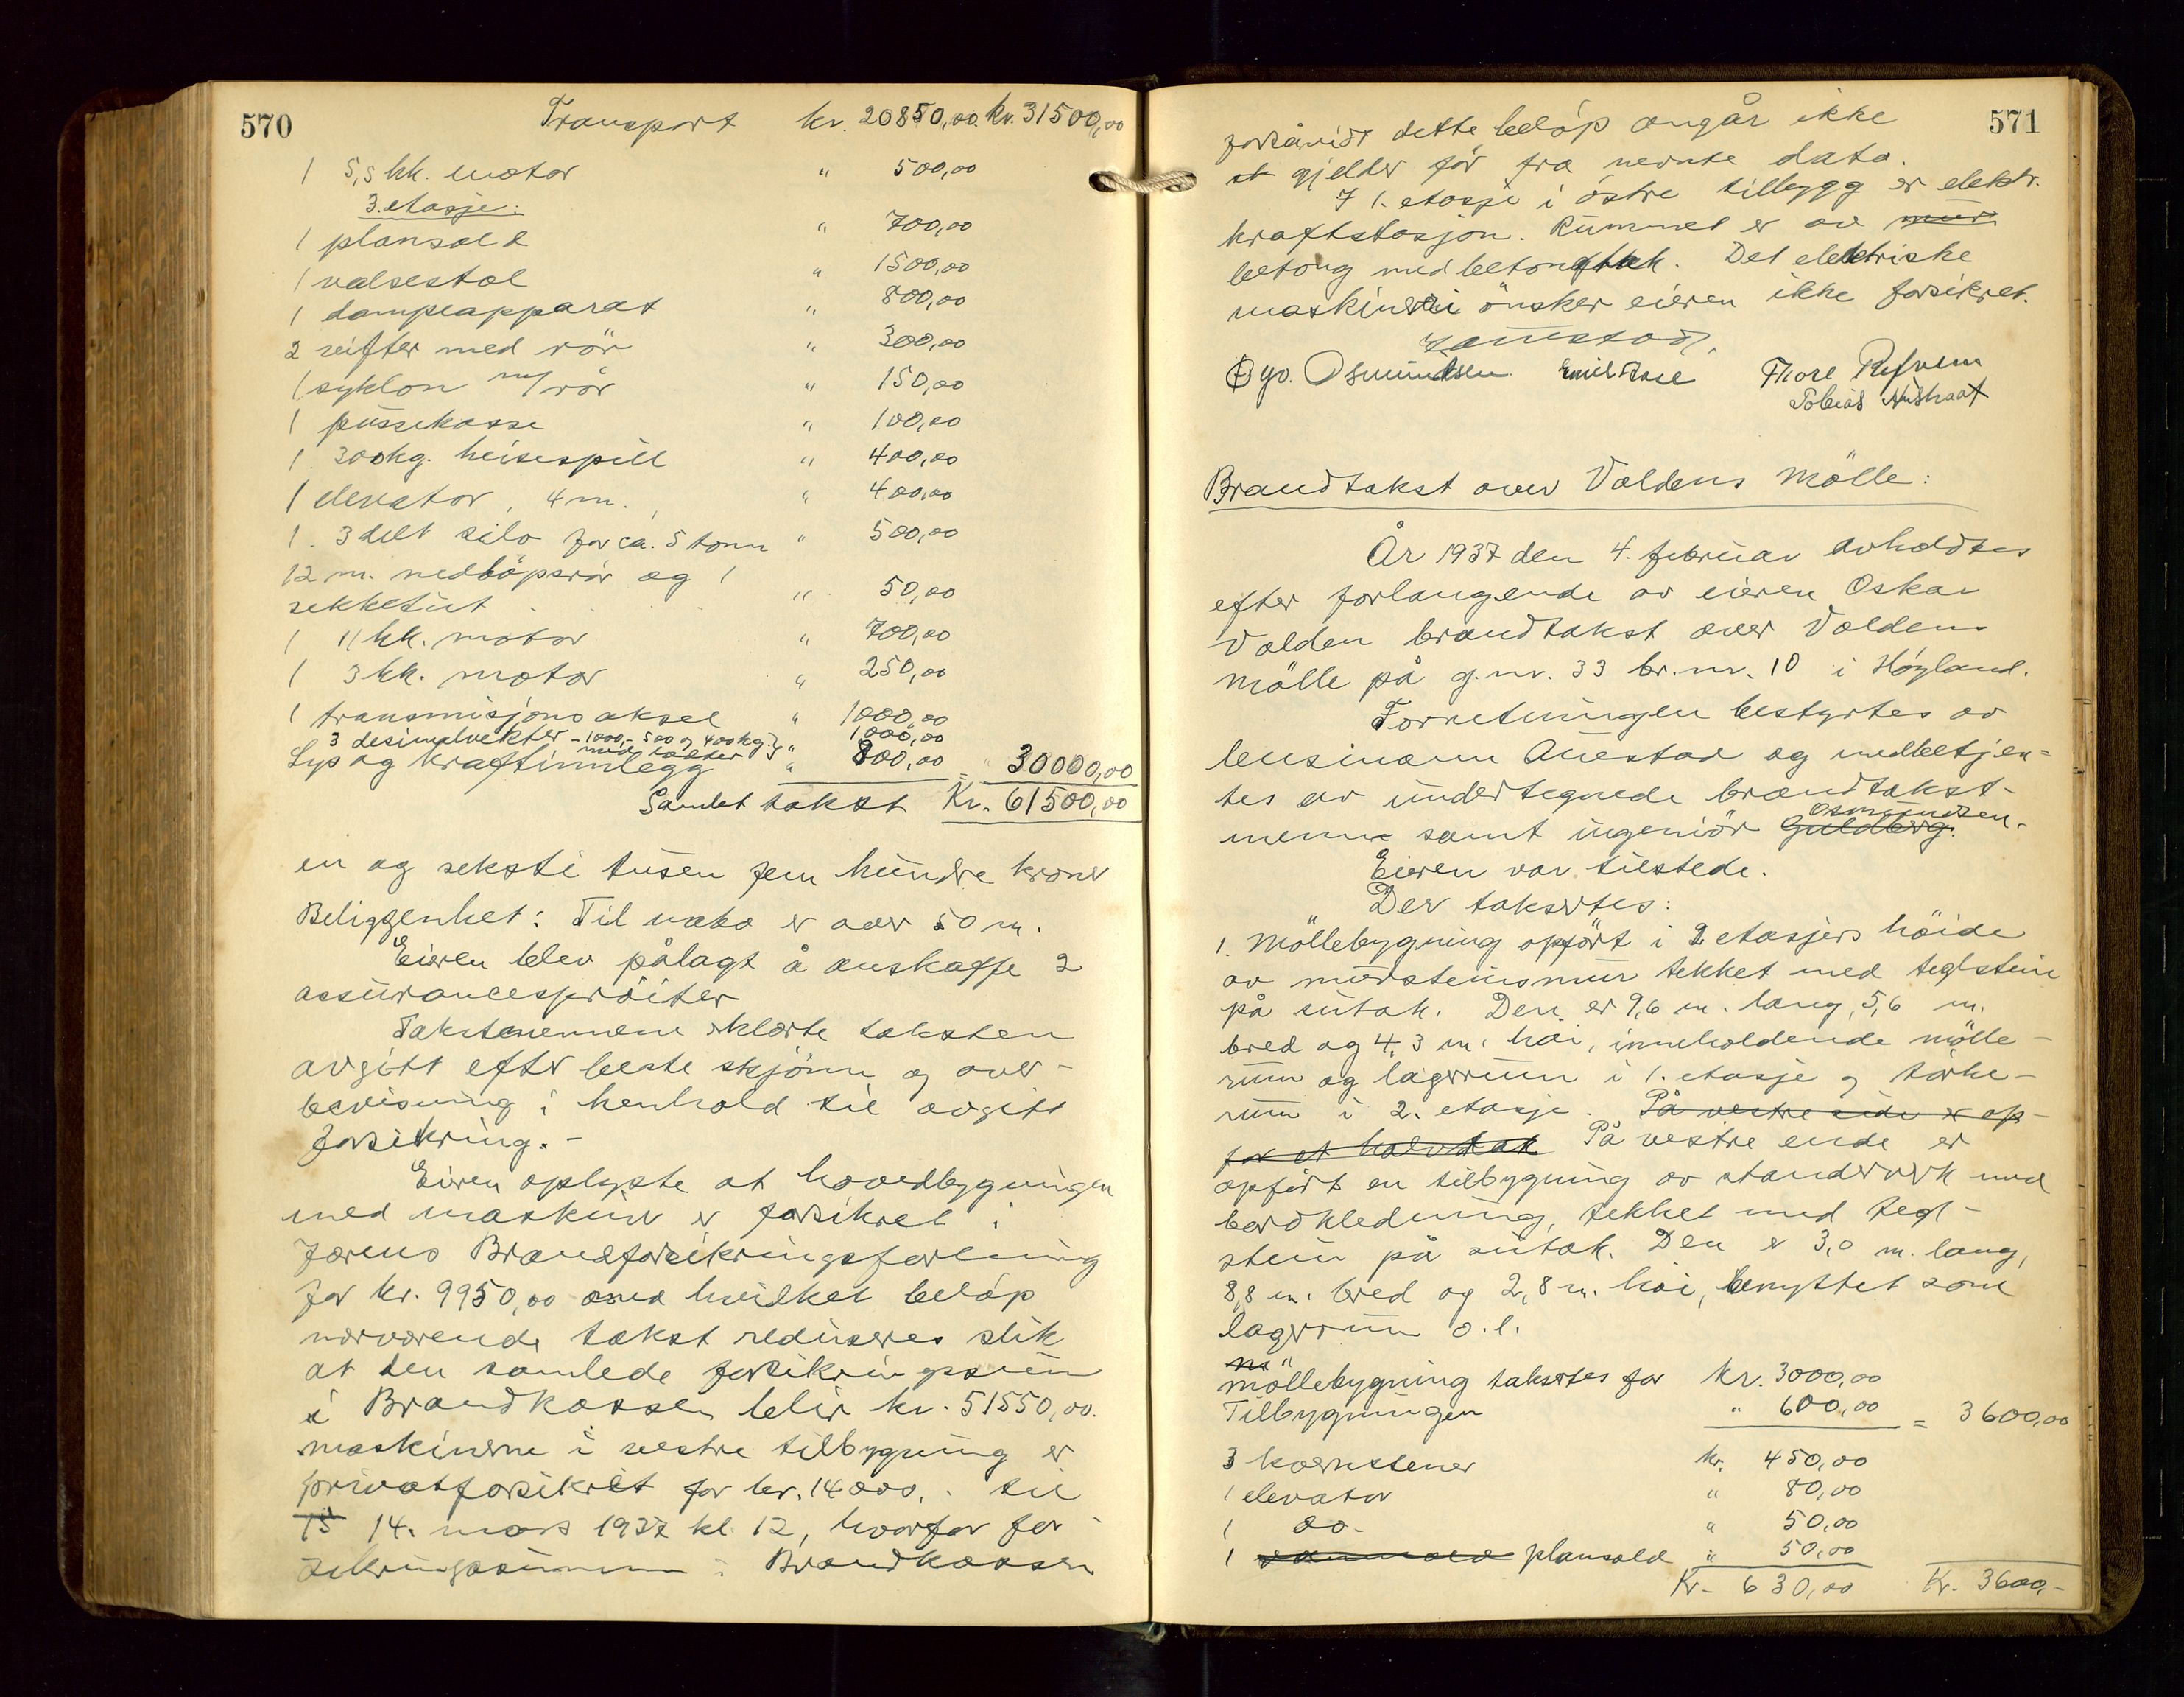 570
Transport kr. 20850,00. Kr. 31500,00
1 5,5 hk. motor " 500,00
3. etasje:
1 plansold " 700,00
1 valsestol " 1500,00
1 dampeapparat " 800,00
2 reifter med rör " 300,00
1 syklon m/ rör " 150,00
1 pussekasse " 100,00
1 300kg. heisespill " 400,00
1 elevator, 4 m. " 400,00
1. 3 delt silo for ca. 5 tonn " 500,00
12 m. nedlöpsrör og 1
sekketut " 50,00
1 11 hk. motor " 700,00
1 3 hk. motor " 250,00
1 transmisjons aksel " 1000,00
3 desimalvekter - 1000,- 500 og 400kg. " 1000,00
med lodder
Lys og kraftinnlegg " 800,00 = " 30000,00
Samlet takst Kr. 61500,00
en og seksti tusen fem hundre kroner
Beliggenhet: Til nabo er over 50 m.
Eieren blev pålagt å anskaffe 2
assurancespröiter
Takstmennene erklærte taksten
avgitt efter beste skjönn og over-
bevisning i henhold til avgitt
forsikring. -
Eieren oplyste at hovedbygningen
med maskiner er forsikret i
Jærens Brandforsikringsforening
for kr. 9950,00 med hvilket belöp
nærværende takst reduseres slik
at den samlede forsikringssum
i Brandkassen blir kr. 51550,00.
maskinerne i vestre tilbygning er
privatforsikret for kr. 14000,. til
15 14. mars 1937 kl. 12, hvorfor for-
sikringssummen i Brandkassen
571
forsåvidt dette belöp angår ikke
gjelder för fra nevnte dato.
I 1. etasje i östre tilbygg er elektr.
kraftstasjon. Rummet er av mur
betong med betongtak. Det elektriske
maskineri önsker eieren ikke forsikret.
Auestad,
Gyo. Osmundsen Emil Tore Thore Refvem
Tobias
Brandtakst over Voldens Mölle:
År 1937 den 4. februar avholdtes
efter forlangende av eieren Oskar
Volden brandtakst over Voldens
Mölle på g.nr. 33 br.nr. 10 i Höyland.
Forretningen bestyrtes av
lensmann Auestad og medbetjen=
tes av undertegnede brandtakst-
menn samt ingeniör Guldberg. Osmundsen.
Eieren var tilstede.
Der takseres:
1. Möllebygning opfört i 2 etasjers höide
av murstensmur tekket med teglstein
på sutak. Den er 9,6 m. lang, 5,6 m.
bred og 4,3 m. höi, inneholdende mölle-
rum og lagerrum i 1. etasje og törke-
rum i 2. etasje. På vestre side er op-
før et halvtak På vestre ende er
opfört en tilbygning av standerverk med
bordkledning, tekket med tegl-
stein på sutak. Den er 3,0 m. lang,
8,8 m. bred og 2,8 m. höi, benyttet som
lagerrum o.l.
Möllebygning takseres for Kr. 3000,00
Tilbygningen " 600,00 = 3600,00
3 kvernstener kr. 450,00
1 elevator " 80,00
1 do- " 50,00
1 plansold " 50,00
Kr- 630,00 Kr. 3600,-